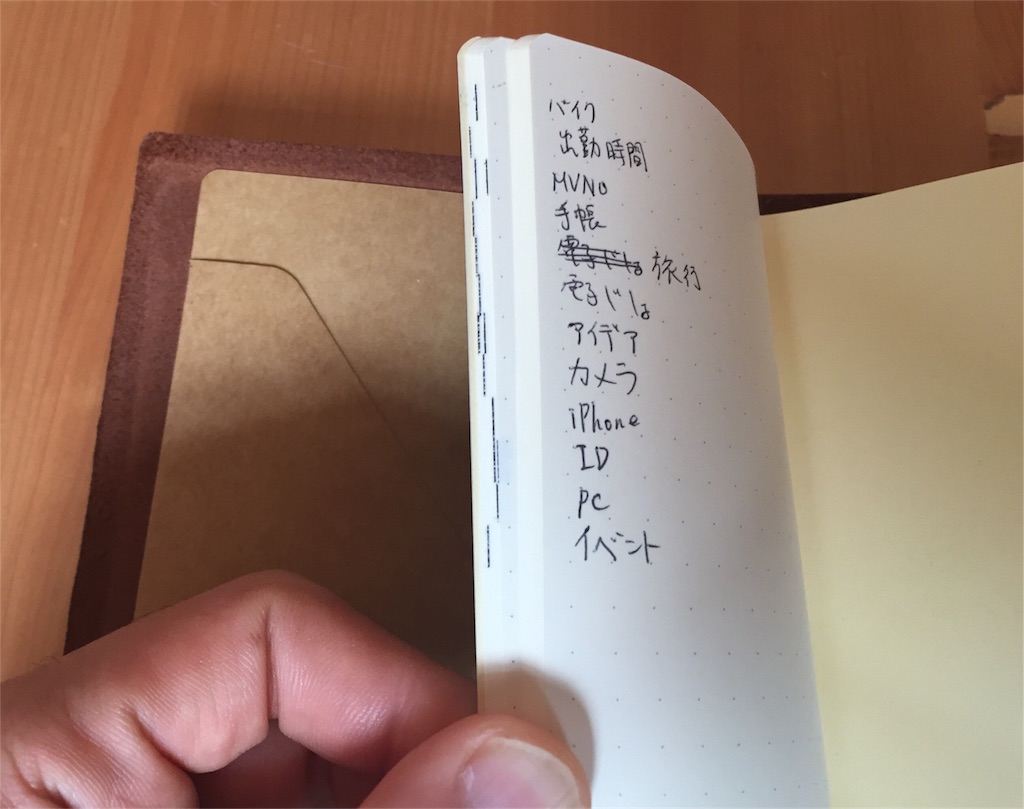 バイク
出勤時間
MVNO
手帳
電子じしょ 旅行
電子じしょ
アイデア
カメラ
iPhone
ID
PC
イベント